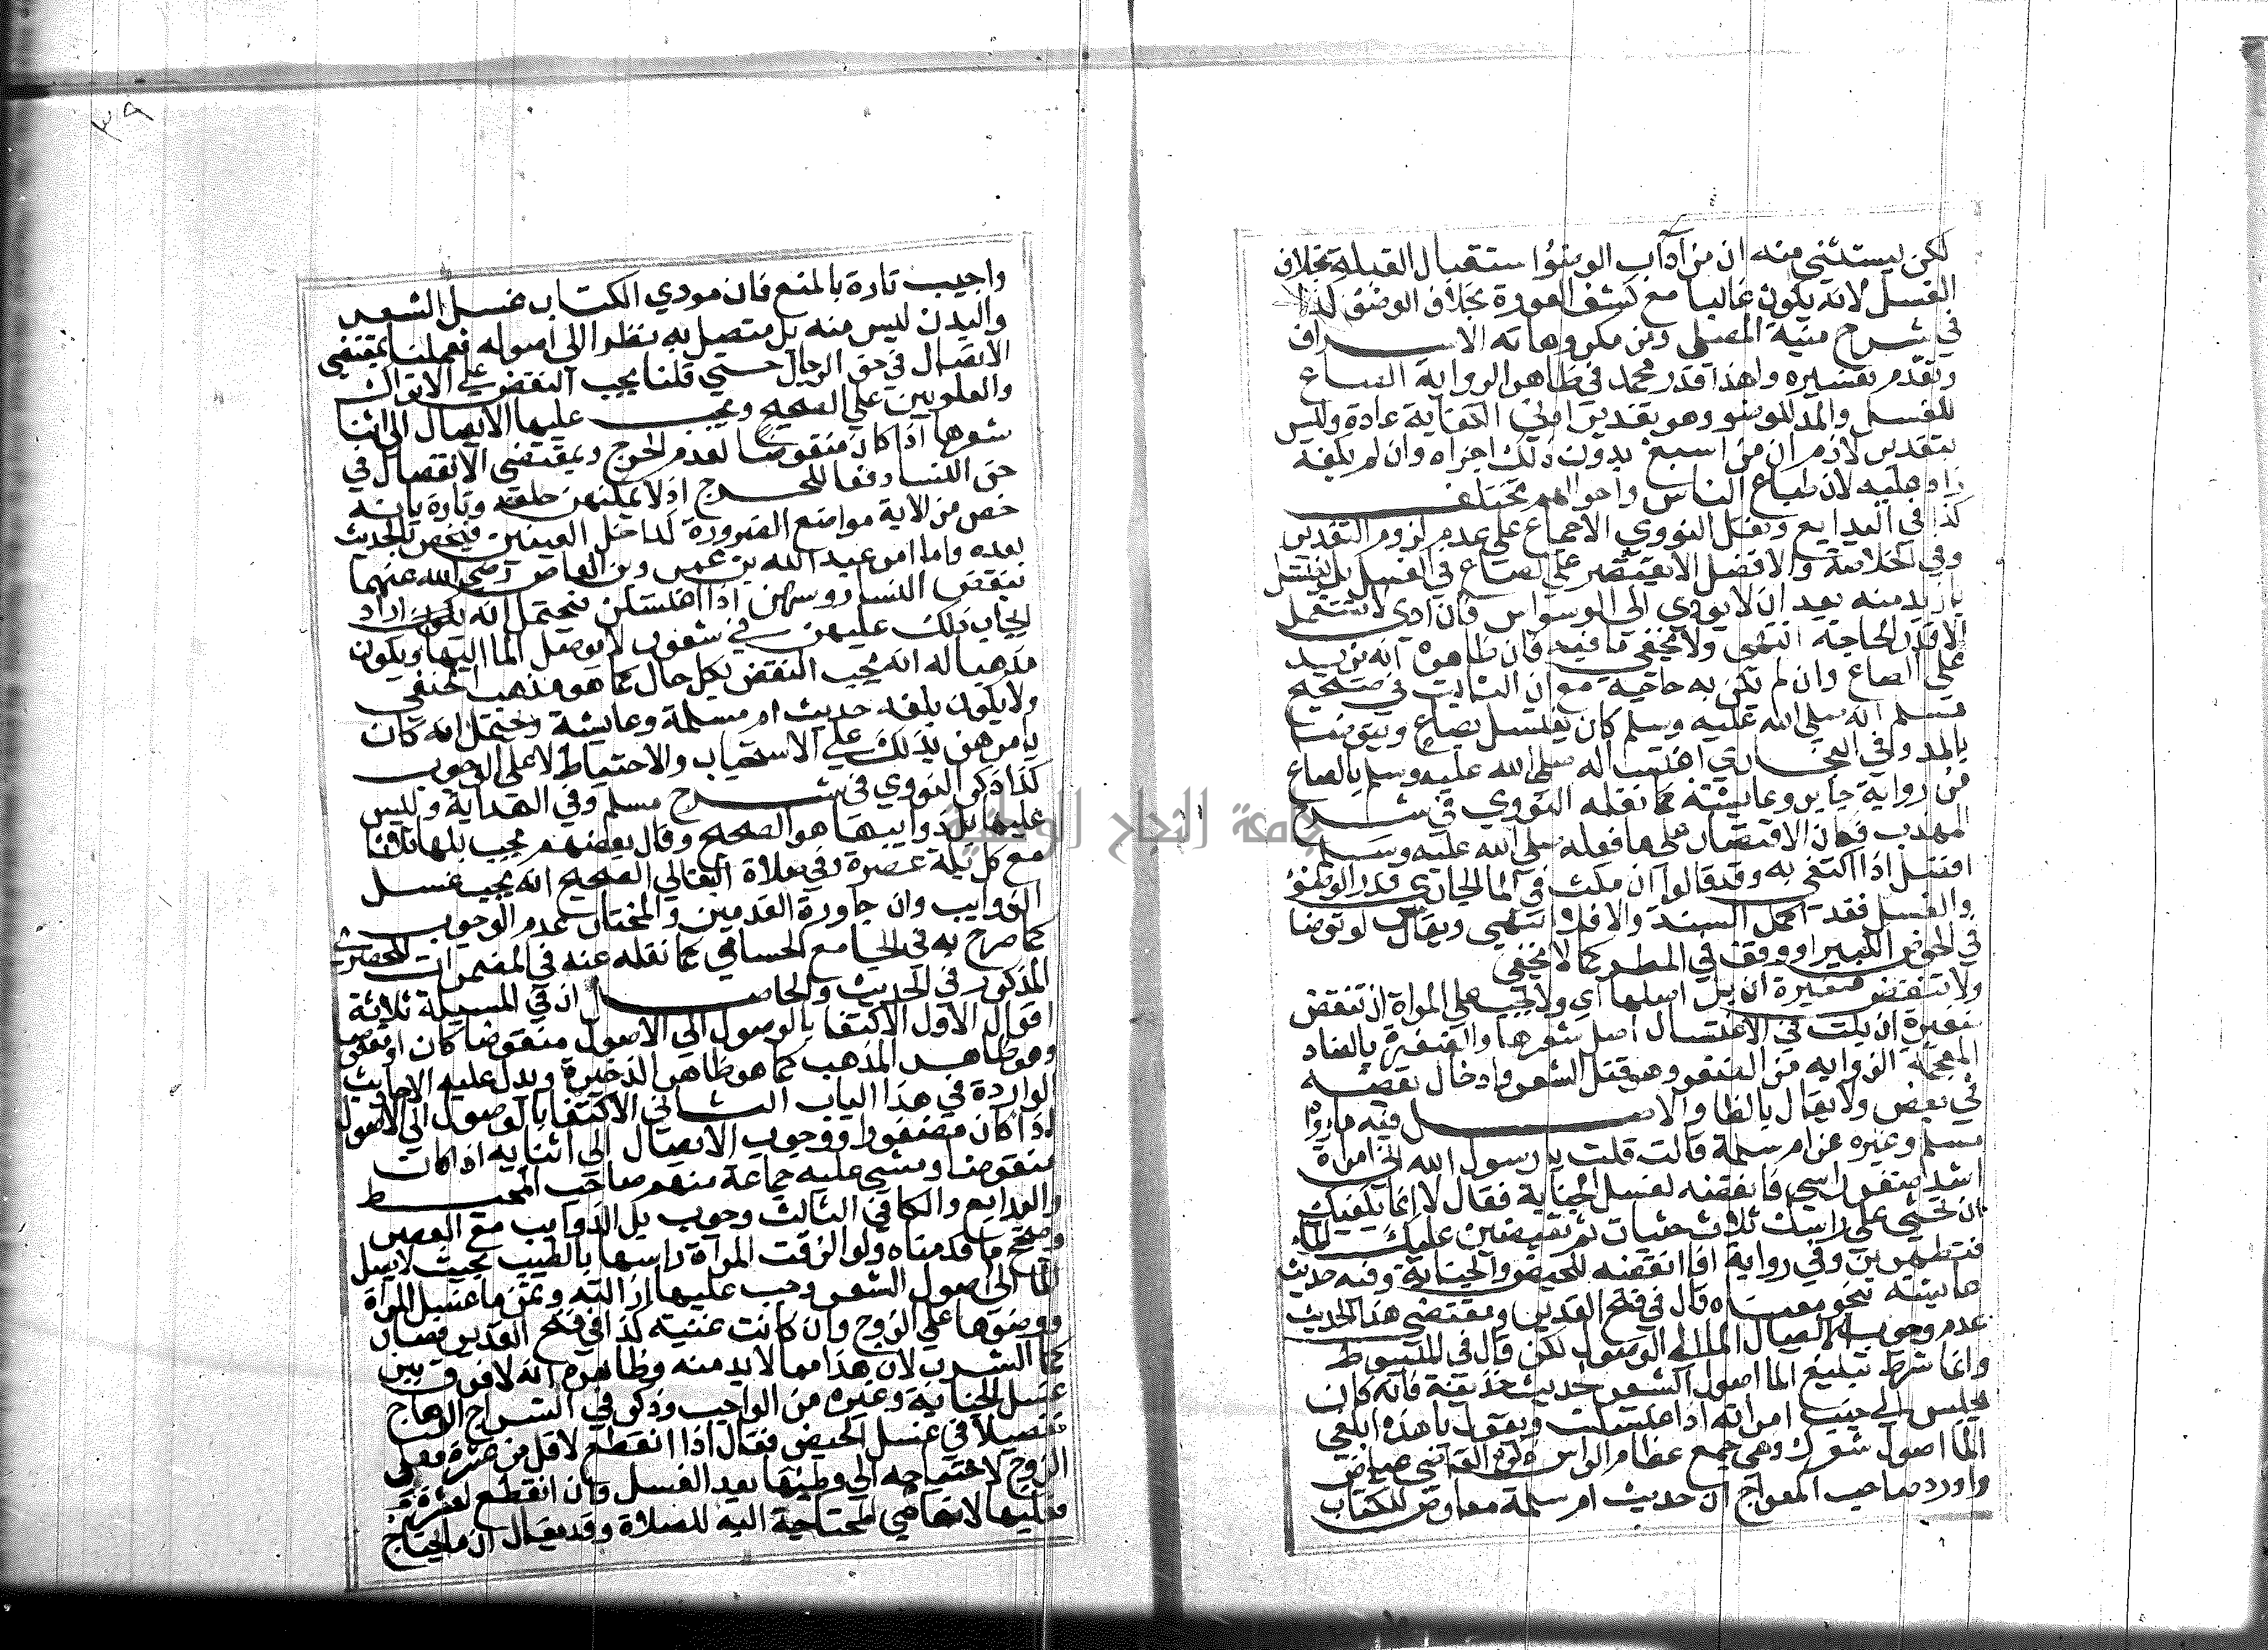 لكن يستثني منه ان من آداب الوضؤ استقبال القبلة بخلاف
الغسل لانه يكون غالبا مع كشف العورة بخلاف الوضؤ كذا
في شرح منية المصلي ومن مكروهاته الاسراف
وتقدم تفسيره ولهذا قدر محمد في ظاهر الرواية الصاع
للغسل والمد للوضو وهو تقدير ادني الكفاية عادة وليس
بتقدير لازم ان من اسبغ بدون ذلك اجزاه وان لم يكفه
زاد عليه لان طباع الناس واحوالهم تختلف
كذا في البدايع ونقل النووي الاجماع علي عدم لزوم التقدير
وفي الخلاصة والافضل ان لا يقتصر علي الصاع في الغسل بل يغتسل
بازيد منه بعد ان لا يودي الى الوسواس فان ادي لا يستعمل
الا قدر الحاجة انتهى ولا يخفي ما فيه فان ظاهره انه يزيد
علي الصاع وان لم تكن به حاجة مع ان الثابت في صحيح
مسلم انه صلي الله عليه وسلم كان يغتسل بصاع ويتوضا
بالمد وفي البخاري اغتساله صلي الله عليه وسلم بالصاع
من رواية جابر وعايشة كما نقله النووي في شرح
المهذب فكان الاقتصار علي ما فعله صلي الله عليه وسلم
افضل اذا اكتفي به وقد قالوا ان مكث في الما الجاري قدر الوضؤ
والغسل فقد اكمل السنة والا فلا انتهي ويقال لو توضا
في الحوض الكبير او وقف في المطر كما لا يخفي
ولا تنقض ضفيرة ان بل اصلها اي ولا يجب علي المراة ان تنقض
ضفيرة ان بلت في الاغتسال اصل شعرها والضفيرة بالضاد
المعجمة الذوابه من الضفر وهو فتل الشعر وادخال بعضه
في بعض ولا يقال بالظا والاصل فيه ما رواه
مسلم وغيره عن ام سلمة قالت قلت يا رسول الله اني امراة
اشد ضفر راسي فانقضه لغسل الجنابة فقال لا انما يكفيك
ان تحثي علي راسك ثلاث حثيات ثم تفيضين عليك الماء
فتطهرين وفي رواية افانقضه للحيض والجنابة وفيه حديث
عايشة بنحو معناه قال في فتح القدير ومقتضي هذا الحديث
عدم وجوب الايصال الى الاصول لكن قال في المبسوط
وانما شرط تبليغ الما اصول الشعر لحديث حذيفة فانه كان
يجلس الي جنب امراته اذا اغتسلت ويقول يا هذه ابلغي
الما اصول شعرك وهي مجمع عظام الراس ذكره القاضي عياض
واورد صاحب المعراج ان حديث ام سلمة معارض للكتاب
٣٩
واجيب تارة بالمنع فان مودي الكتاب غسل الشعر
والبدن ليس منه بل متصل به نظرا الي اصوله فعملنا بمقتضي
الاتصال في حق الرجال حتي قلنا يجب النقض علي الاتراك
والعلويين علي الصحيح ويجب عليها الايصال الي اثنا
شعرها اذا كان منقوضا لعدم الحرج وبمقتضي الانفصال في
حق النسا دفعا للحرج اذ لا يمكنهن حلقه وتارة بانه
خص من الاية مواضع الضرورة كداخل العينين فيخص بالحديث
بعده واما امر عبد الله بن عمر وبن العاص رضي الله عنهما
بنقض النسا روسهن اذا اغتسلن فيحتمل انه اراد
ايجاب ذلك عليهن في شعور لا يوصل الما اليها ويكون
مذهبا له انه يجب النقض بكل حال كما هو مذهب النخعي
ولا يكون بلغه حديث ام سلمة وعايشة ويحتمل انه كان
يامرهن بذلك علي الاستحباب والاحتياط لا علي الوجوب
كذا ذكر النووي في شرح مسلم وفي الهداية وليس
عليها بل ذوايبها هو الصحيح وقال بعضهم يجب بلها ثلاثا
مع كل بلة عصرة وفي صلاة البقالي الصحيح انه يجب غسل
الذوايب وان جاوزت القدمين والمختار عدم الوجوب
كما صرح به في الجامع الحسامي كما نقله عنه في المضمرات للحصر
المذكور في الحديث والحاصل ان في المسيلة ثلاثة
اقوال الاول الاكتفا بالوصول الي الاصول منقوضا كان او معقوصا
وهو ظاهر المذهب كما هو ظاهر الذخيرة ويدل عليه الاحاديث
الواردة في هذا الباب الثاني الاكتفا بالوصول الي الاصول
اذا كان مضفورا ووجوب الايصال الي اثنايه اذا كان
منقوضا ومشي عليه جماعة منهم صاحب المحيط
والبدايع والكافي الثالث وجوب بل الذوايب مع العصر
وصحح ما قدمناه ولو الزقت المراة راسها بالطيب بحيث لا يصل
الما الي اصول الشعر وجب عليها ازالته وثمن ما غسل المراة
ووضوها علي الزوج وان كانت غنية كذا في فتح القدير فصار
كما الشرب لان هذا مما لا بد منه وظاهره انه لا فرق بين
غسل الجنابة وغيره من الواجب وذكر في السراج الوهاج
تفصيلا في غسل الحيض فقال اذا انقطع لاقل من عشرة فعلي
الزوج لاحتياجه الي وطيها بعد الغسل وان انقطع لعشرة
فعليها لانها هي المحتاجة اليه للصلاة وقد يقال ان ما تحتاج
جامعة النجاح الوطنية